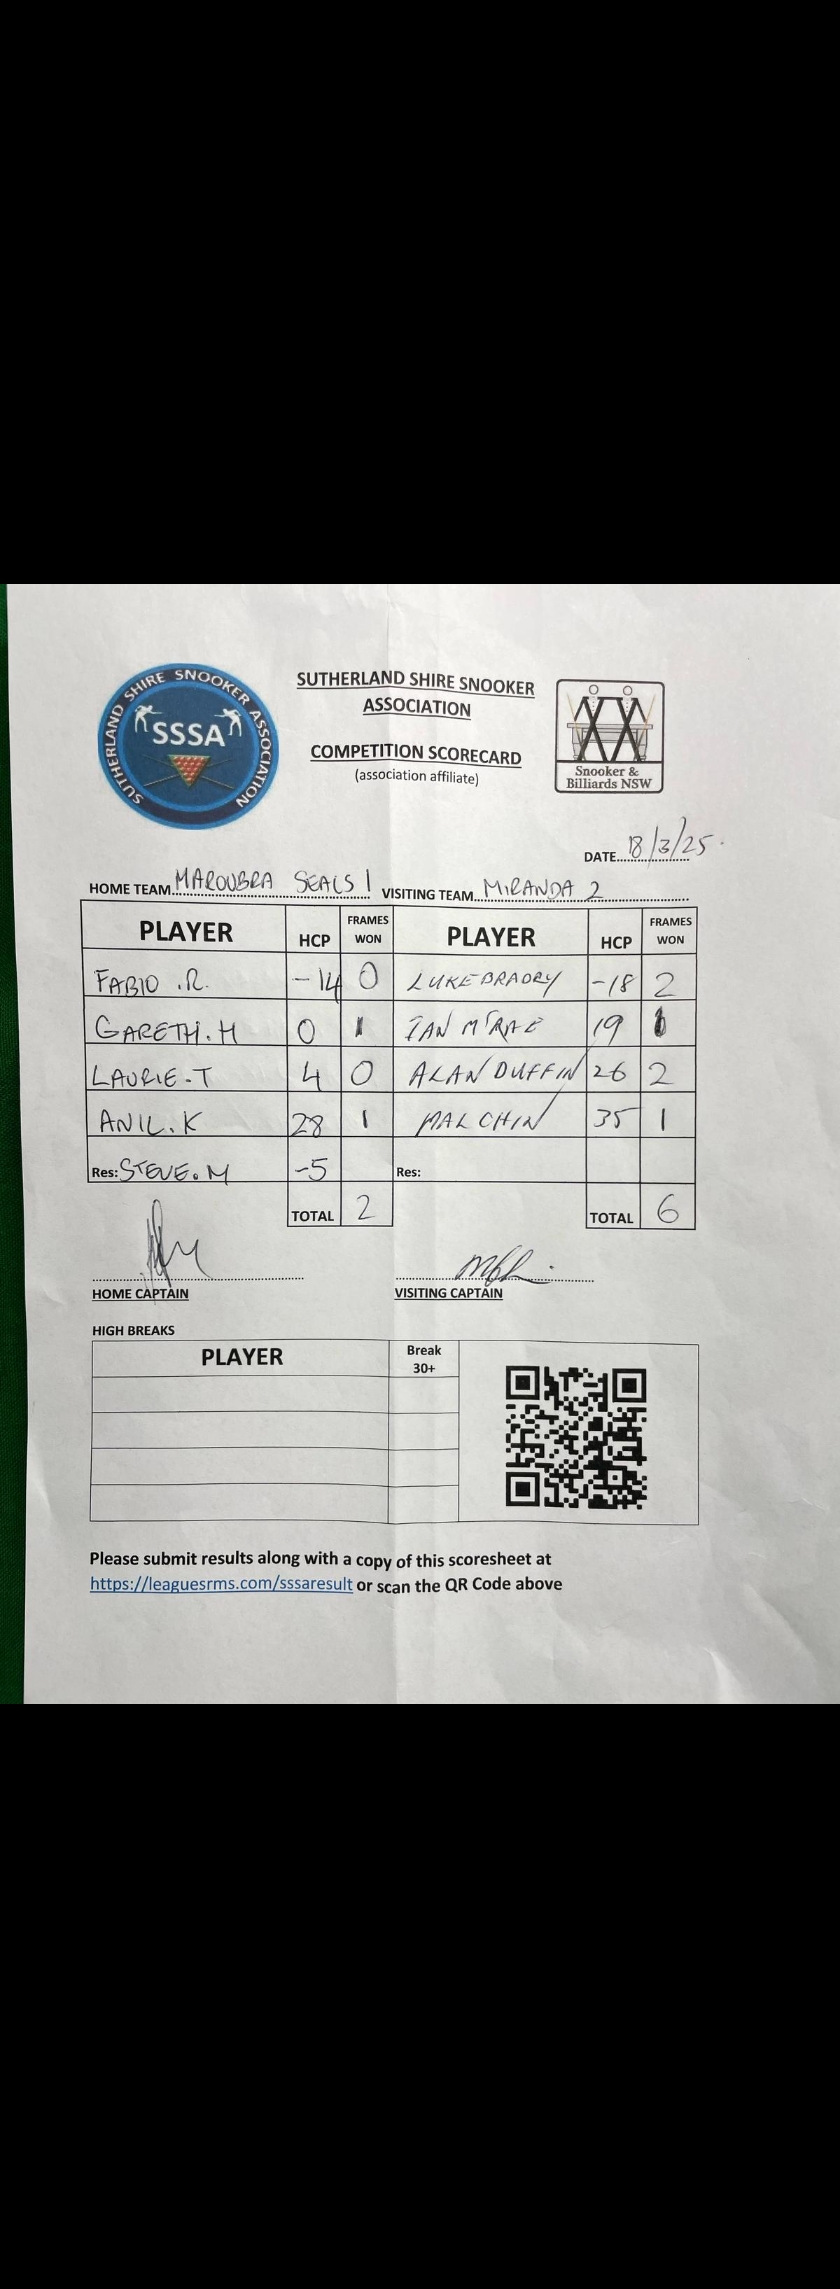 SUTHERLAND SHIRE SNOOKER ASSOCIATION
SSSA
SUTHERLAND SHIRE SNOOKER
ASSOCIATION
COMPETITION SCORECARD
(association affiliate)
Snooker &
Billiards NSW
DATE 18/3/25
HOME TEAM MAROUBRA SEALS 1 VISITING TEAM MIRANDA 2
PLAYER HCP FRAMES WON PLAYER HCP FRAMES WON
FABIO .R. -14 0 LUKE BRADRY -18 2
GARETH.H 0 1 IAN McRAE 19 1
LAURIE-T 4 0 ALAN DUFFIN 26 2
ANIL.K 28 1 MAL CHIN 35 1
Res: STEVE.M -5 Res:
TOTAL 2 TOTAL 6
HOME CAPTAIN VISITING CAPTAIN
HIGH BREAKS
PLAYER Break 30+
Please submit results along with a copy of this scoresheet at
https://leaguesrms.com/sssaresult or scan the QR Code above